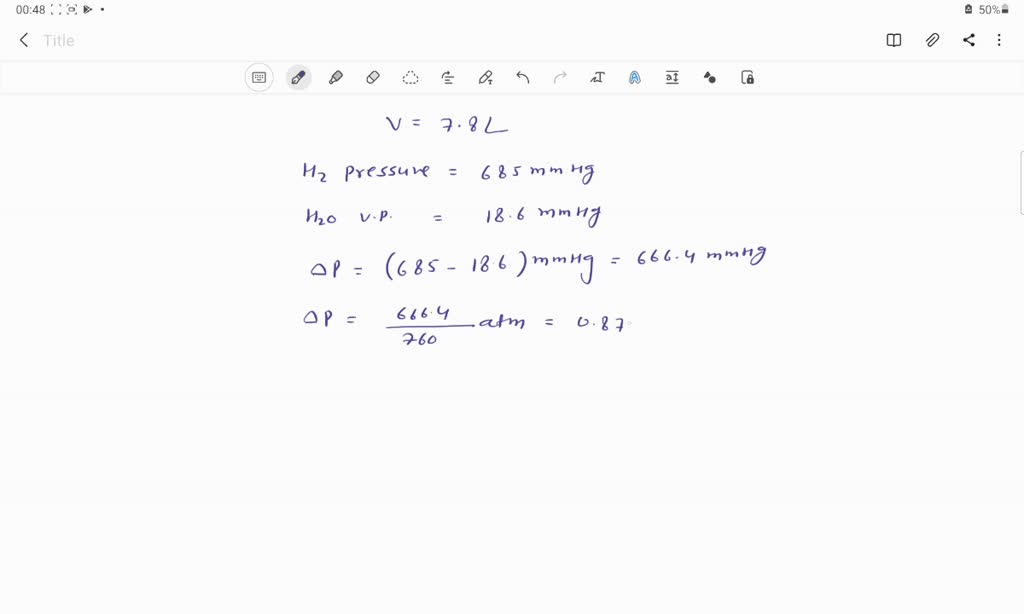 00:48 50%
Title
V = 7.8L
H2 pressure = 685 mmHg
H2O v.p. = 18.6 mmHg
ΔP = (685 - 18.6) mmHg = 666.4 mmHg
ΔP = 666.4/760 atm = 0.87